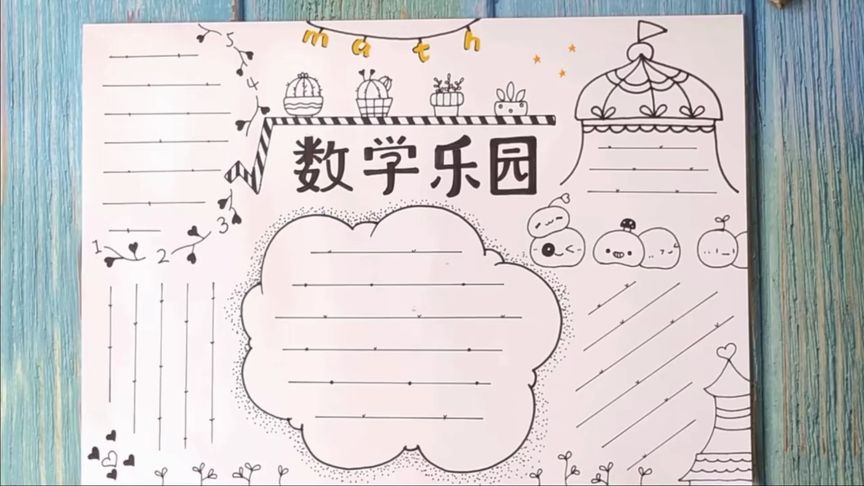 math
数学乐园
5
4
3
1 2